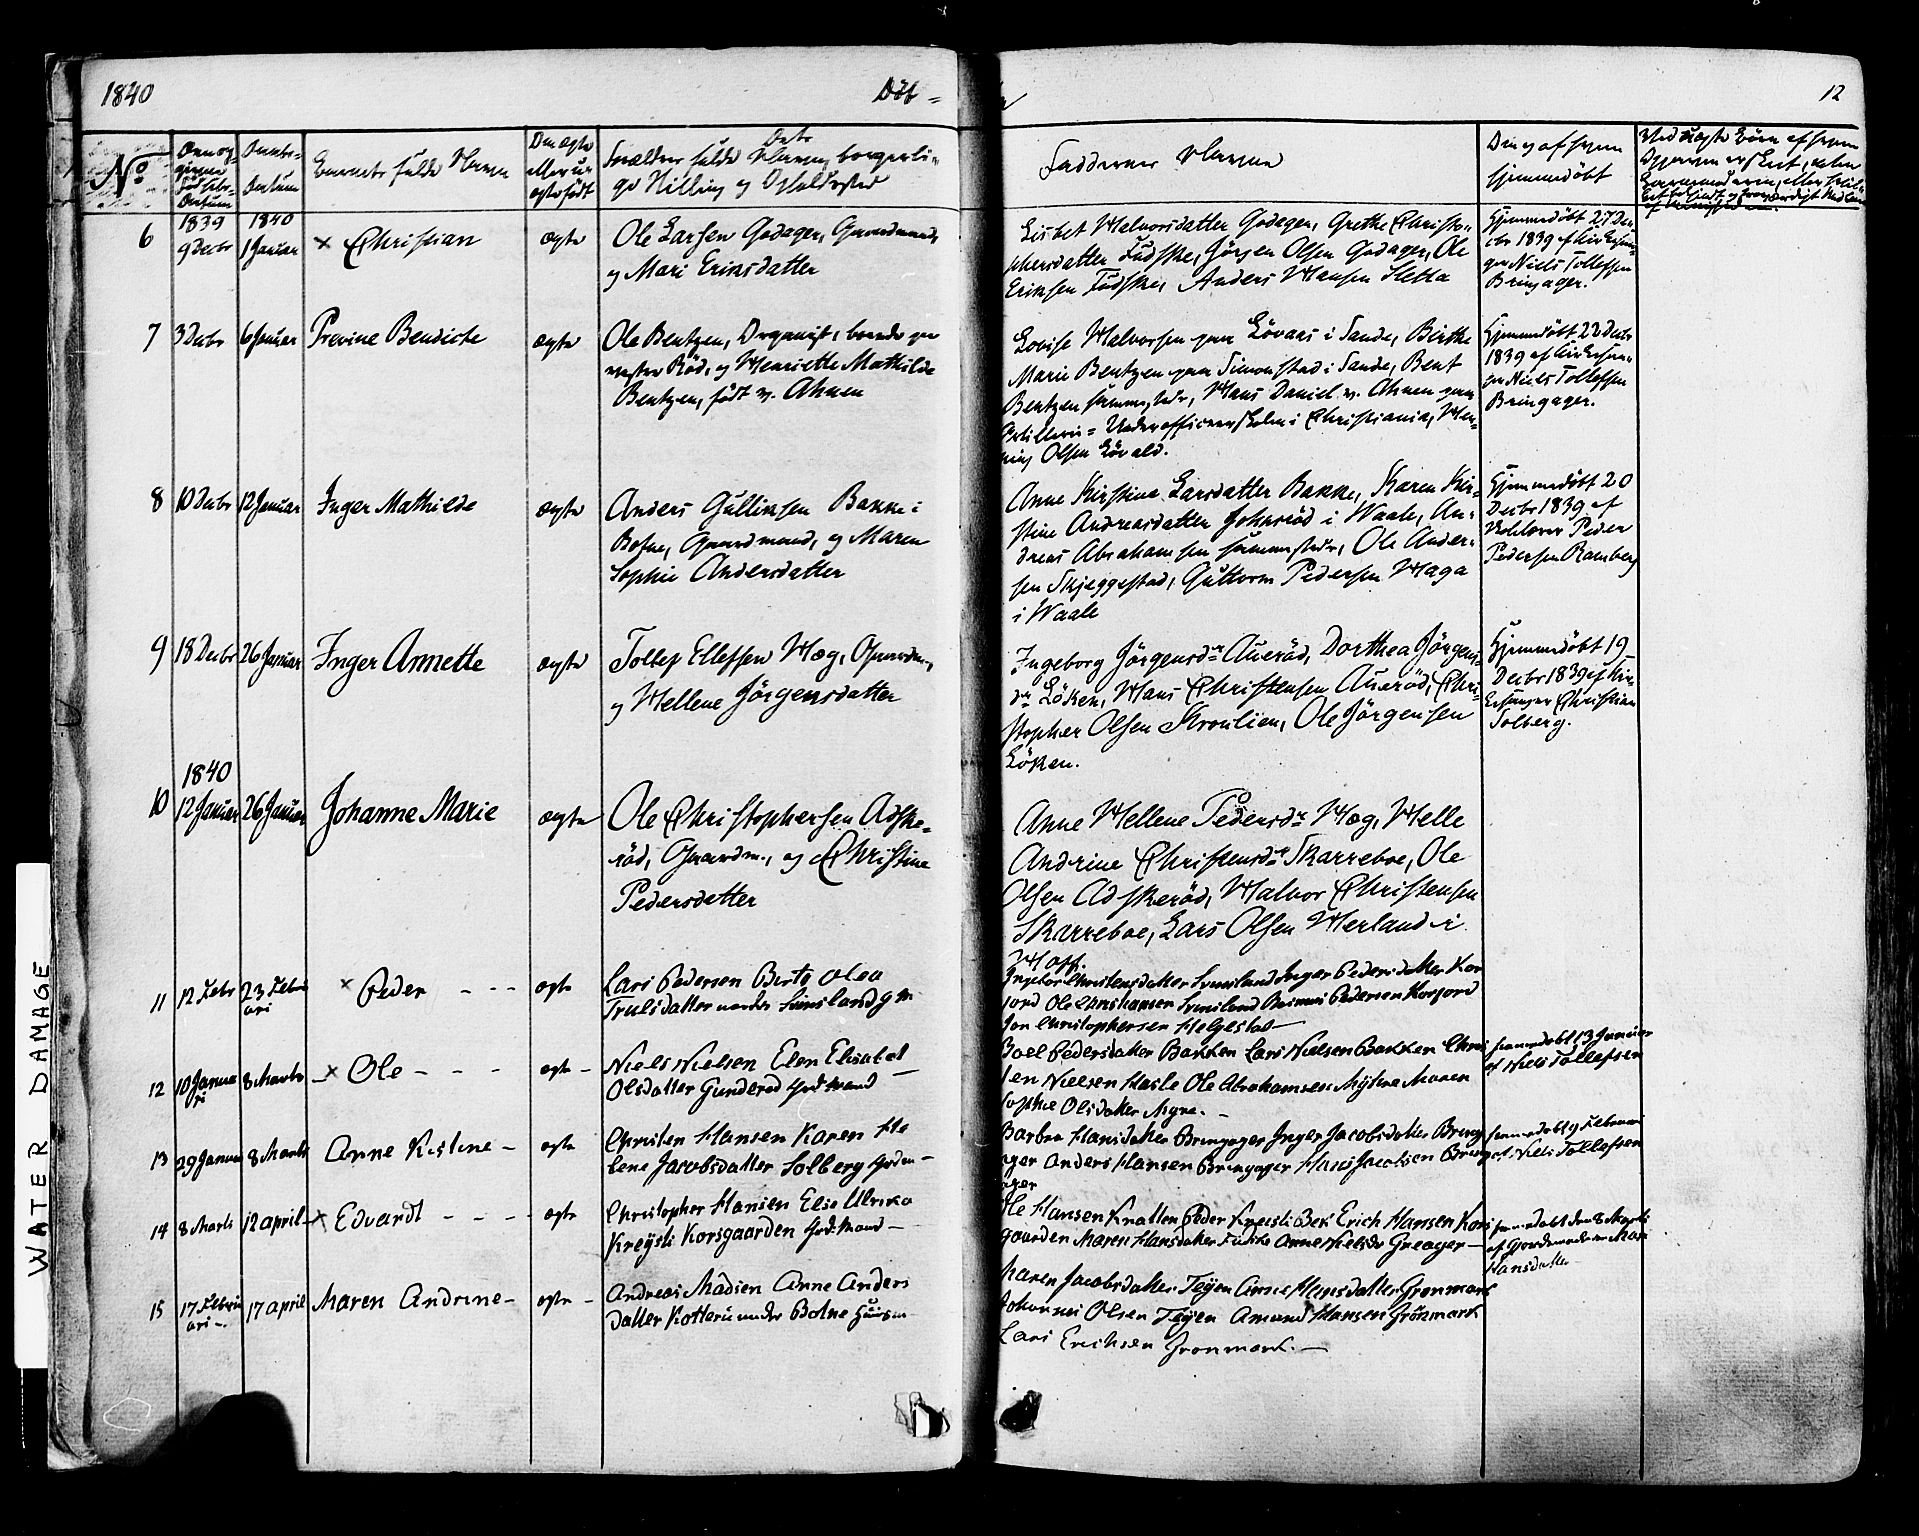 1840
Döb =
12
No
Barnets fulde Navn
Faddernes Navne
Hjemmedöbt
6
1839
9 Decbr
1840
1 Januar
× Christian
ægte
Ole Larsen Godager, Gaardmand,
og Mari Eriksdatter
Lisbet Halvorsdatter Godager, Grethe Christo-
phersdatter Fudske, Jörgen Olsen Godager, Ole
Eriksen Fudske, Anders Hansen Sletta
Hjemmedöbt 27 De-
cbr 1839 af Kirkesan-
ger Niels Tollefsen
Bringager.
7
3 Decbr
6 Januar
Previne Bendicte
ægte
Ole Bentzen, Organist, boende paa
Röd, og Henriette Mathilde
Bentzen, födt v. Ahnen
Lovise Halvorsen paa Lövaas i Sande, Birthe
Marie Bentzen paa Simonstad i Sande, Bent
Bentzen sammesteds, Hans Daniel v. Ahnen paa
Artilleri = Underofficeerskolen i Christiania, Hen-
ning Olsen Lövald.
Hjemmedöbt 22 Decbr
1839 af Kirkesan-
ger Niels Tollefsen
Bringager.
8
10 Decbr
12 Januar
Inger Mathilde
ægte
Anders Gulliksen Bakke i
Botne, Gaardmand, og Maren
Sophie Andersdatter
Anne Kirstine Larsdatter Bakke, Karen Kir-
stine Andreasdatter Johnsröd i Waale, An-
dreas Abrahamsen sammesteds, Ole Ander-
sen Skjeggestad, Guttorm Pedersen Haga
i Waale
Hjemmedöbt 20
Decbr 1839 af
Peder
Pedersen Ramberg
9
18 Decbr
26 Januar
Inger Annette
ægte
Tollef Ellefsen Hæg, Gaardm.,
og Hellene Jörgensdatter
Ingeborg Jörgensdr Aueröd, Dorthea Jörgens-
dr Löken, Hans Christensen Aueröd, Chri-
stopher Olsen Kronlien, Ole Jörgensen
Löken.
Hjemmedöbt 19
Decbr 1839 af Kir-
kesanger Christian
Solberg.
1840
10
12 Januar
26 Januar
Johanne Marie
ægte
Ole Christophersen Adske-
röd, Gaardm., og Christine
Pedersdatter
Anne Hellene Pedersdr Hæg, Helle
Andrine Christensdr Skarreboe, Ole
Olsen Adskeröd, Halvor Christensen
Skarreboe, Lars Olsen Herland i
Hoff.
11
12 Febr
23 Febru
ari
× Peder - - -
ægte
Lars Pedersen Berte Olea
Trulsdatter nordre Sunsland g m
Christensdatter Sunsland Inger Pedersdatter Kor
sord Ole Christiansen Sunsland Rasmus Pedersen Korsord
Jon Christophersen Helgestad —
12
10 Janua
ri
8 Marts
× Ole - - -
ægte -
Niels Nielsen Elen Elisabet
Olsdatter Gunderöd Grdmand —
Boel Pedersdatter Bakken Lars Nielsen Bakken Chris
ten Nielsen Hasle Ole Abrahamsen Myhre Maren
Sophie Olsdatter Myre. —
hjemmedöbt 13 Januar
af Niels Tollefsen
13
29 Januar
8 Marts
Anne Kistine -
ægte
Christen Hansen Karen He
lene Jacobsdatter Solberg Grdm —
Barbra Hansdatter Bringager Inger Jacobsdatter Bring
ager Anders Hansen Bringager Hans Jacobsen Bring
ager
hjemmedöbt 9 Februar
af Niels Tollefsen
14
8 Marts
12 april -
× Edvardt - - -
ægte
Christopher Hansen Else Ulrika
Kreysli Korsgaarden Grdmand —
Ole Hansen Knatten Peder Kreisli Bek Erich Hansen Kors
gaarden Maren Hansdatter Fuske Anne Nielsdr Greager —
hjemmedöbt den 8 Marts
af Gjordemoderen Mari
Hansdatter
15
17 Febru
ari -
17 april
Maren Andrine -
ægte -
Andreas Madsen Anne Anders
datter Kotteru under Botne Huusm
Maren Jacobsdatter Teyen Anne Hansdatter Gronmark
Johannes Olsen Teyen Amund Hansen Grönmark
Lars Erichsen Gronmark. —
WATER DAMAGE